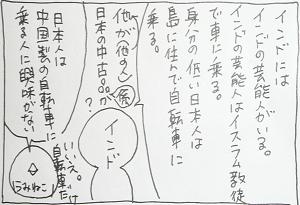 インドには
インドの芸能人がいる。
インドの芸能人はイスラム教徒
で車に乗る。
身分の低い日本人は
島に住んで自転車に
乗る。
他が他の人
日本の中古。。が
?
インド
日本人は
中国製の自転車に
乗る人に興味がない
いいえ。
自転車だけ
うみねこ